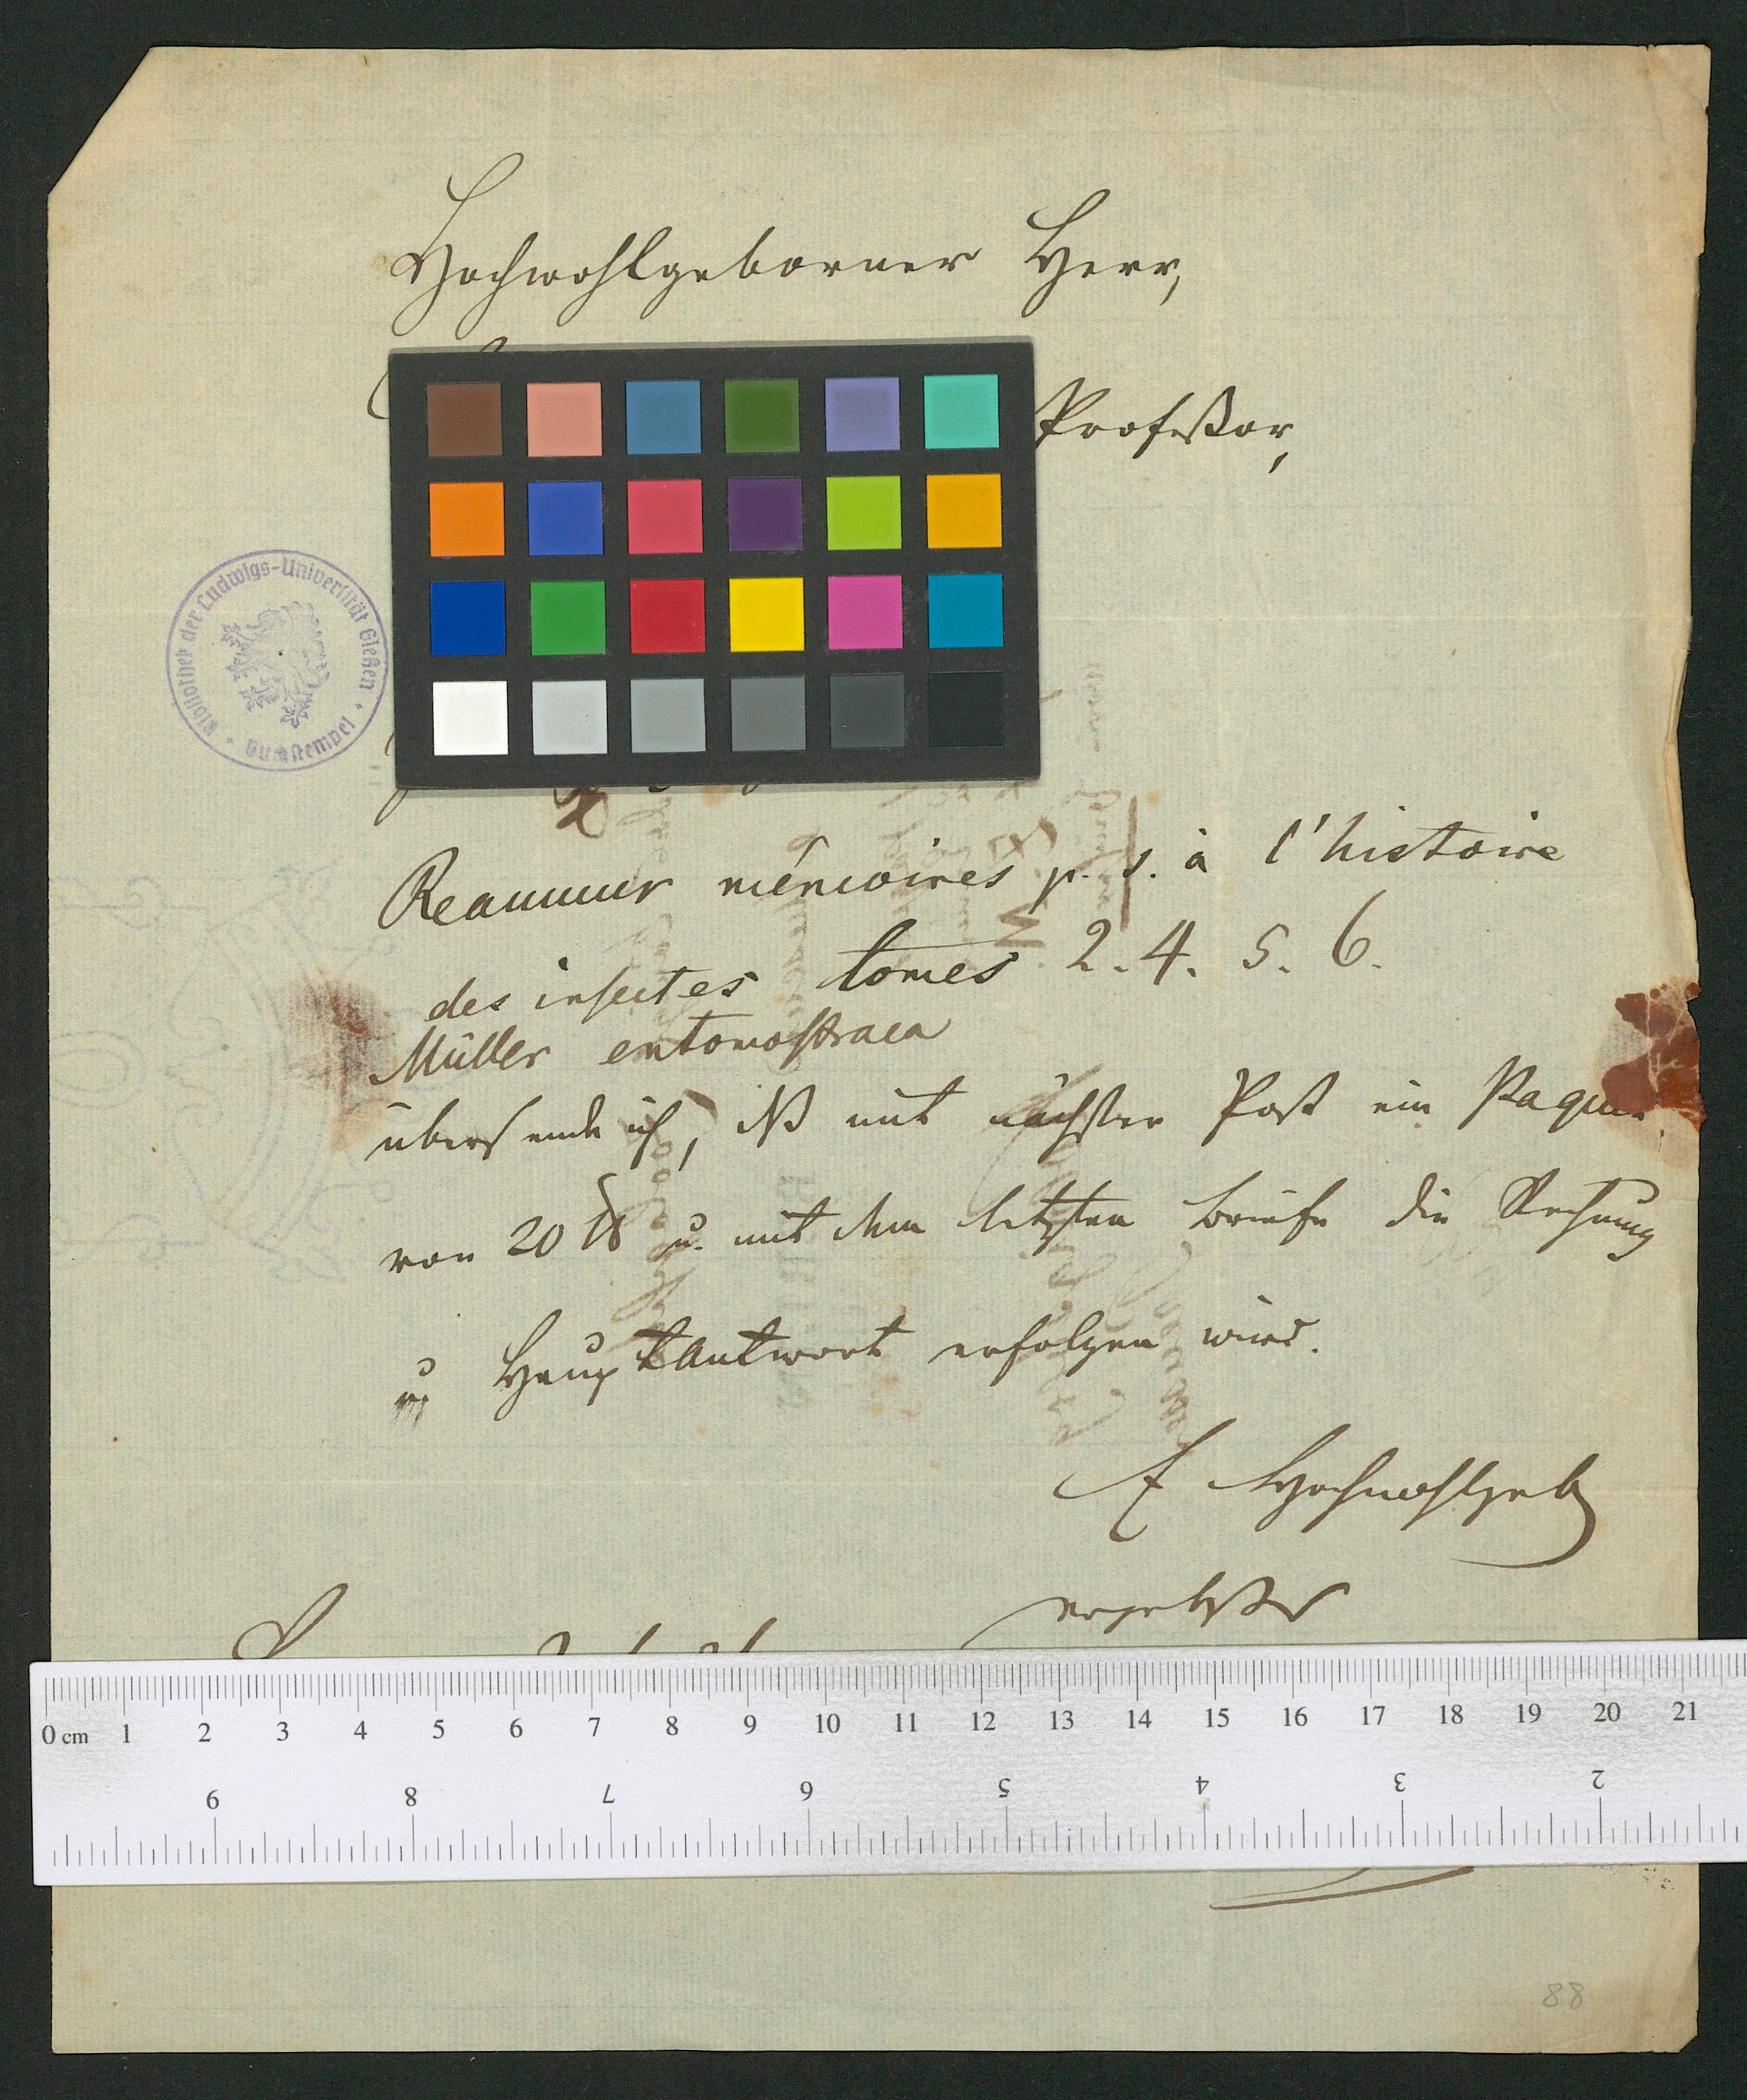 Hochwohlgeborner Herr,
Profeßor,
Bibliothek der Ludwigs-Universität Gießen
Reaumur mémoires p. s. à l'histoire
des insectes tomes 2. 4. 5. 6.
Müller entomostraca
übersende ich, mit nächster Post ein Paquet
von 20 ℔ u. mit dem letzten Briefe die Rechnung
u HauptAntwort erfolgen wird.
E Hochwohlgeb
ergebster
0 cm 1 2 3 4 5 6 7 8 9 10 11 12 13 14 15 16 17 18 19 20 21
9 8 7 6 5 4 3 2
88